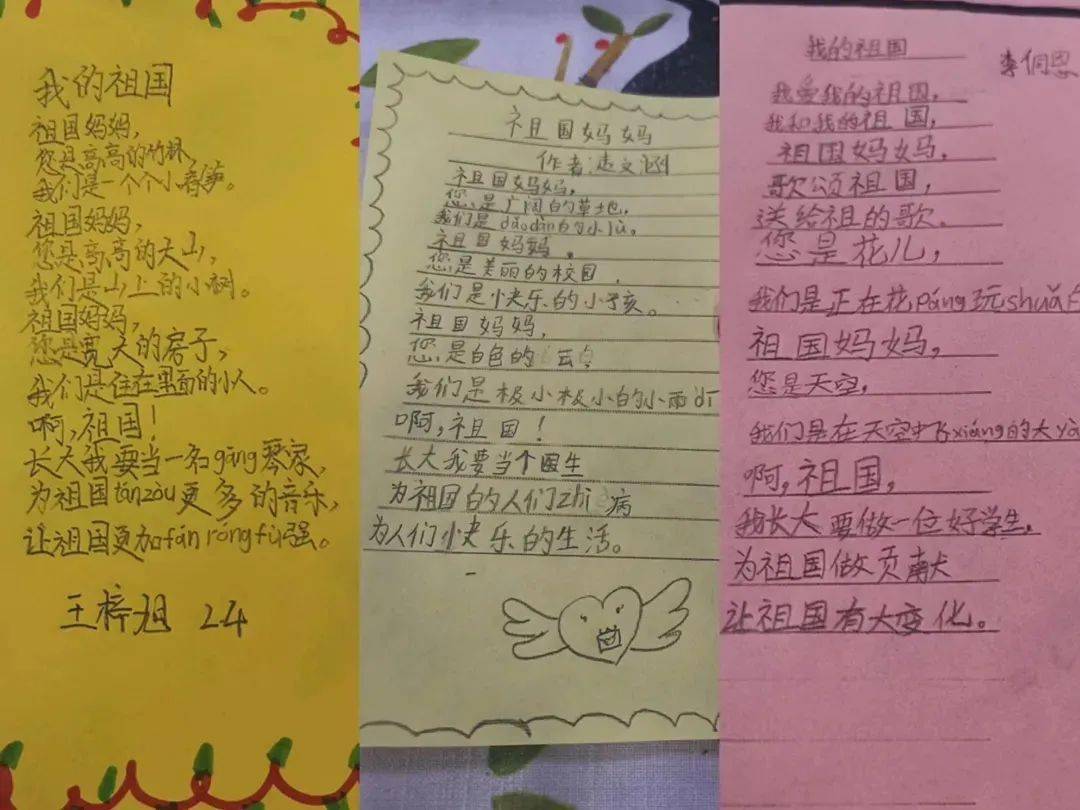 我的祖国
祖国妈妈,
您是高高的竹林,
我们是一个个小春笋。
祖国妈妈,
您是高高的大山,
我们是山上的小树。
祖国妈妈,
您是宽大的房子,
我们是住在里面的小人。
啊,祖国!
长大我要当一名gāng琴家,
为祖国tánzòu更多的音乐,
让祖国更加fán róng fù强。
王梓旭 24
祖国妈妈
作者:文涵
祖国妈妈,
您是广阔的草地,
我们是dǎodàn的小lù。
祖国妈妈,
您是美丽的校园,
我们是快乐的小孩。
祖国妈妈,
您是白色的云
我们是极小极小的小雨dī
啊,祖国!
长大我要当个医生
为祖国的人们zhì病
为人们快乐的生活。
我的祖国
李侗恩
我爱我的祖国,
我和我的祖国,
祖国妈妈,
歌颂祖国,
送给祖的歌。
您是花儿,
我们是正在花páng玩shuǎ
祖国妈妈,
您是天空,
我们是在天空中飞xiáng的大yà
啊,祖国,
我长大要做一位好学生,
为祖国做贡献
让祖国有大变化。